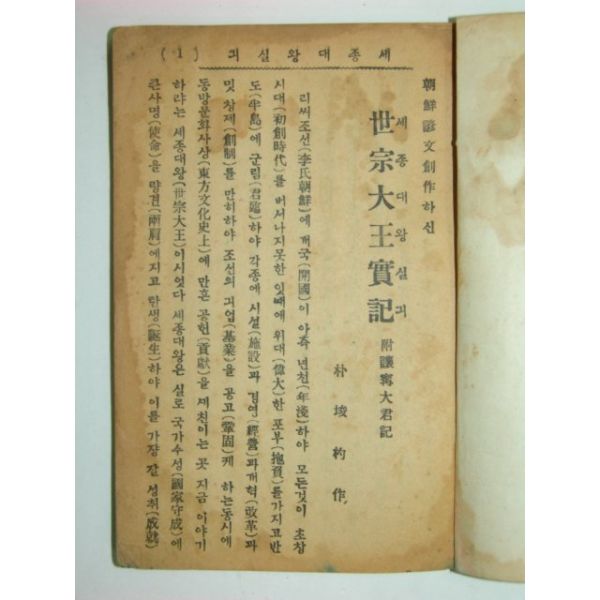 세종대왕실긔 (1)
朝鮮諺文創作하신
세종대왕실긔
世宗大王實記 附讓寧大君記
朴埈杓作
리씨조선(李氏朝鮮)에 개국(開國)이 아즉 년천(年淺)하야 모든것이 초창
시대(初創時代)를 버서나지못한 잇때에 위대(偉大)한 포부(抱負)를가지고반
도(半島)에 군림(君臨)하야 각종에 시설(施設)과 경영(經營)과개혁(改革)과
밋 창제(創制)를 만히하야 조선의 긔업(基業)을 공고(鞏固)케 하는동시에
동방문화사상(東方文化史上)에 만흔 공헌(貢献)을 세친이는 곳 지금 이야기
하랴는 세종대왕(世宗大王)이시엇다 세종대왕은 실로 국가수성(國家守成)에
큰사명(使命)을 량견(兩肩)에지고 탄생(誕生)하야 이를 가장 잘 성취(成就)